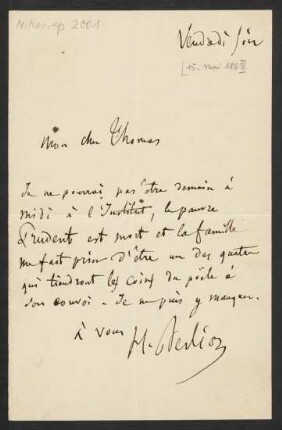 N.Mus.ep. 2001
Vendredi soir
[15. Mai 1863]
Mon cher Thomas
Je ne pourrai pas être demain à
midi à l'Institut, le pauvre
Prudent est mort et la famille
me fait prier d'être un des quatre
qui tiendront les coins du poële à
son convoi. Je ne puis y manquer.
à vous
H. Berlioz